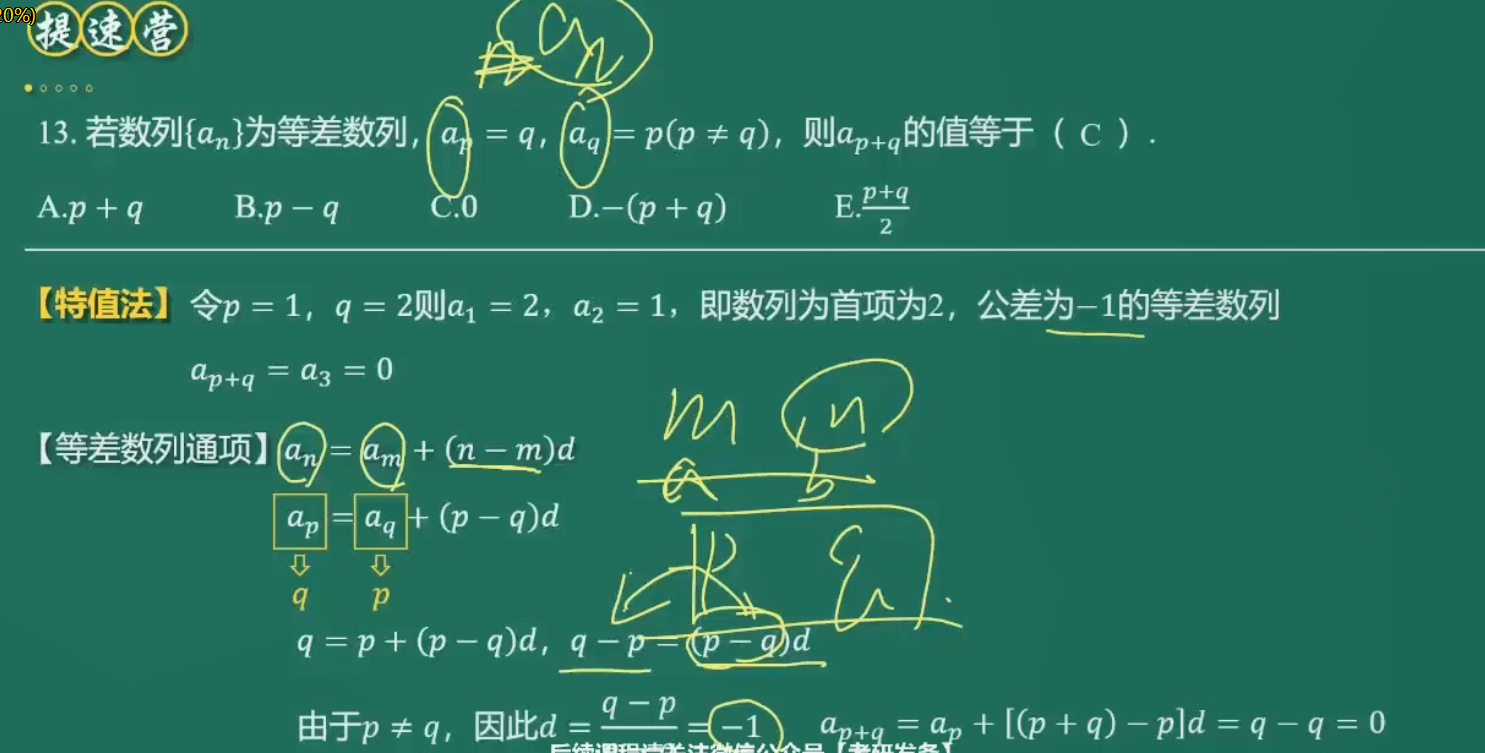 20%)
提速营
aₙ
13. 若数列{aₙ}为等差数列，aₚ = q，a_q = p(p ≠ q)，则a_{p+q}的值等于（ C ）.
A.p + q B.p − q C.0 D.−(p + q) E.\frac{p+q}{2}
【特值法】令p = 1，q = 2则a₁ = 2，a₂ = 1，即数列为首项为2，公差为−1的等差数列
a_{p+q} = a₃ = 0
m n
【等差数列通项】aₙ = aₘ + (n − m)d
a b
aₚ = a_q + (p − q)d
q p
q = p + (p − q)d，q − p = (p − q)d
由于p ≠ q，因此d = \frac{q − p}{} = −1 a_{p+q} = aₚ + [(p + q) − p]d = q − q = 0
后续课程请关注微信公众号【考研发条】